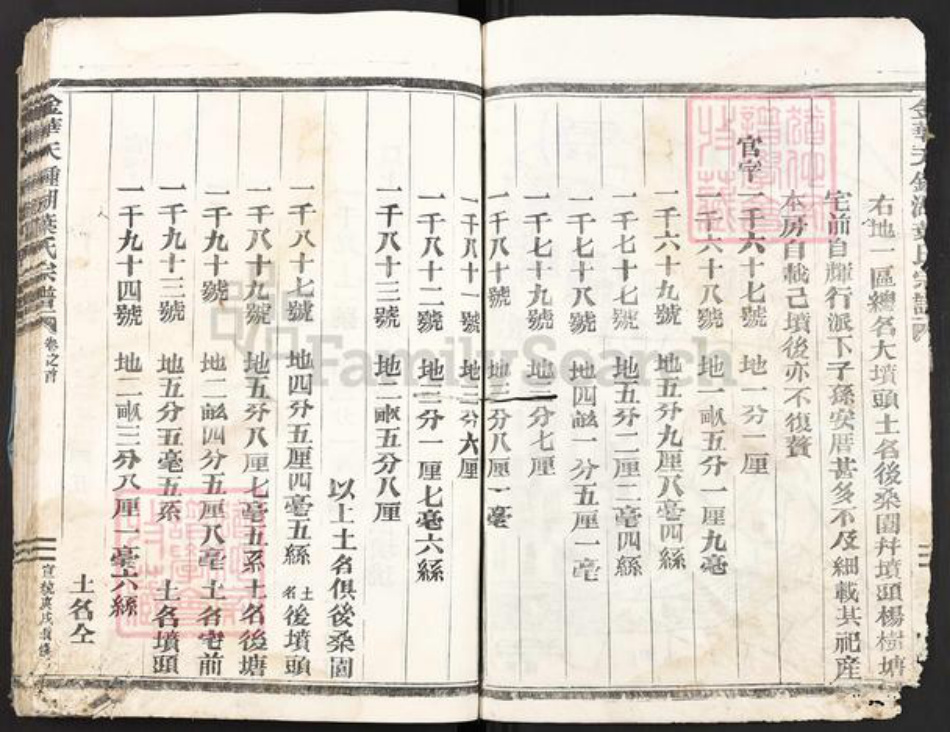 右地一區總名大墳頭土名後桑園幷墳頭楊樹塘
宅前自輝行派下子孫安厝甚多不及細載其祀產
本房自載己墳後亦不復贅
官字
一千六十七號 地一分一厘
一千六十八號 地一畝五分一厘九毫
一千六十九號 地五分九厘八毫四絲
一千七十號 地五分二厘二毫四絲
一千七十八號 地四畝一分五厘一毫
一千七十九號 地二分七厘
一千八十號 地三分八厘一毫
一千八十一號 地三分六厘
一千八十二號 地三分一厘七毫六絲
一千八十三號 地二畝五分八厘
以上土名俱後桑園
一千八十七號 地四分五厘四毫五絲 土名後墳頭
一千八十九號 地五分八厘七毫五系土名後塘
一千九十號 地二畝四分五厘八毫 土名宅前
一千九十三號 地五分五毫五系 土名墳頭
一千九十四號 地二畝三分八厘一毫六絲
土名仝
金華天鍾湖葉氏宗譜 卷之首
宣統庚戌重修
FamilySearch